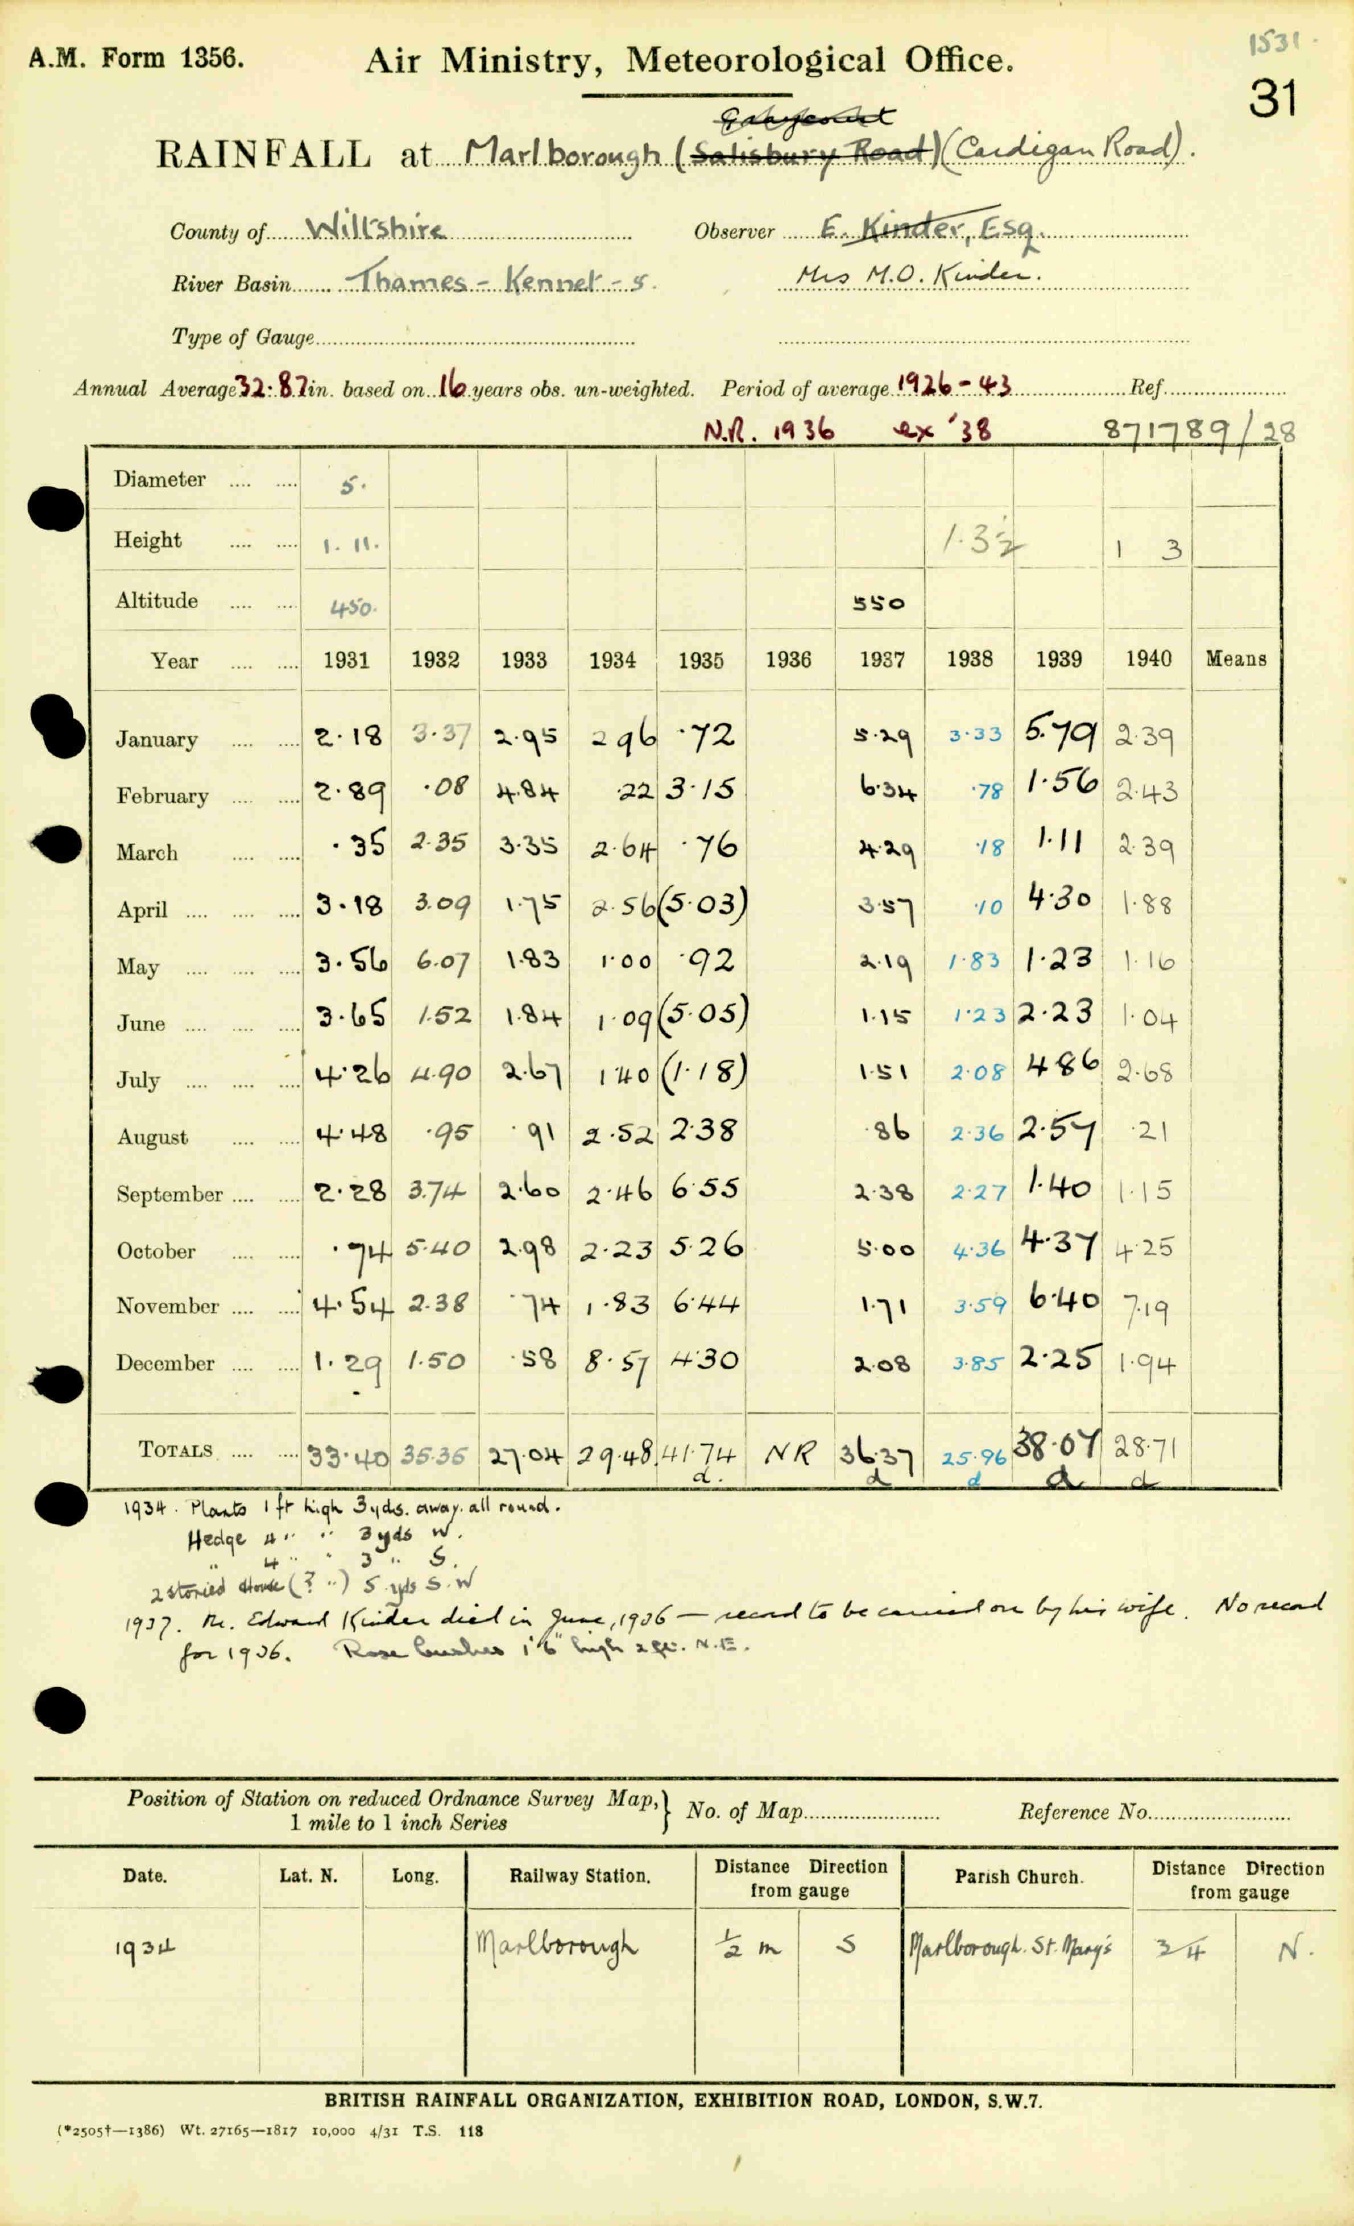 1531.
A.M. Form 1356. Air Ministry, Meteorological Office. 31
RAINFALL at Marlborough (Salisbury Road) (Cardigan Road).
County of Wiltshire Observer E. Kinder, Esq.
River Basin Thames - Kennet - s. Mrs M.O. Kinder.
Type of Gauge
Annual Average 32.87 in. based on 16 years obs. un-weighted. Period of average 1926-43 Ref.
N.R. 1936 ex '38 871789/28
Diameter 5.
Height 1. 11. 1.3½ 1 3
Altitude 450. 550
Year 1931 1932 1933 1934 1935 1936 1937 1938 1939 1940 Means
January 2.18 3.37 2.95 2 96 .72 5.29 3.33 5.79 2.39
February 2.89 .08 4.84 .22 3.15 6.34 .78 1.56 2.43
March .35 2.35 3.35 2.64 .76 4.29 .18 1.11 2.39
April 3.18 3.09 1.75 2.56 (5.03) 3.57 .10 4.30 1.88
May 3.56 6.07 1.83 1.00 .92 2.19 1.83 1.23 1.16
June 3.65 1.52 1.84 1.09 (5.05) 1.15 1.23 2.23 1.04
July 4.26 4.90 2.67 1.40 (1.18) 1.51 2.08 4.86 2.68
August 4.48 .95 .91 2.52 2.38 .86 2.36 2.57 .21
September 2.28 3.74 2.60 2.46 6.55 2.38 2.27 1.40 1.15
October .74 5.40 2.98 2.23 5.26 5.00 4.36 4.37 4.25
November 4.54 2.38 .74 1.83 6.44 1.71 3.59 6.40 7.19
December 1.29 1.50 .58 8.57 4.30 2.08 3.85 2.25 1.94
TOTALS 33.40 35.35 27.04 29.48 41.74 NR 36.37 25.96 38.07 28.71
d. d d d d
1934. Plants 1 ft high 3 yds. away. all round.
Hedge 4 " " 3 yds W.
" 4 " " 3 " S.
2 storied House (? ") 5 yds S.W
1937. Mr. Edward Kinder died in June, 1936 — record to be carried on by his wife. No record
for 1936. Rose bushes 1'6" high 2 ft. N.E.
Position of Station on reduced Ordnance Survey Map,} No. of Map Reference No.
1 mile to 1 inch Series
Date. Lat. N. Long. Railway Station. Distance Direction from gauge Parish Church. Distance Direction from gauge
1934 Marlborough ½ m S Marlborough. St. Mary's 3/4 N.
BRITISH RAINFALL ORGANIZATION, EXHIBITION ROAD, LONDON, S.W.7.
(*2505†—1386) Wt. 27165—1817 10,000 4/31 T.S. 118